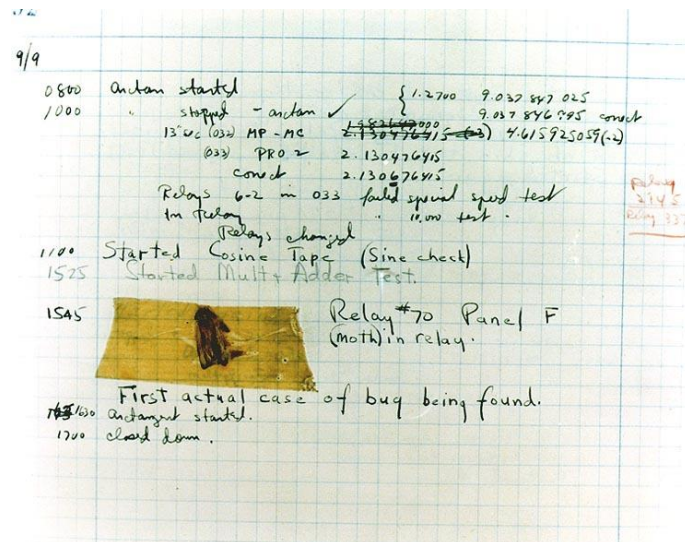 9/9
0800 arctan started { 1.2700 9.037 847 025
1000 " stopped - arctan ✓ 9.037 846 995 correct
13"uc (032) MP - MC 2.130476415 (-3) 4.615925059(-2)
(033) PRO 2 2.130476415
correct 2.130676415
Relays 6-2 in 033 failed special speed test
in relay " 10,000 test.
Relays changed
Relay
2145
Relay 337
1100 Started Cosine Tape (Sine check)
1525 Started Mult + Adder Test.
1545 Relay #70 Panel F
(moth) in relay.
First actual case of bug being found.
1630 arctangent started.
1700 closed down.